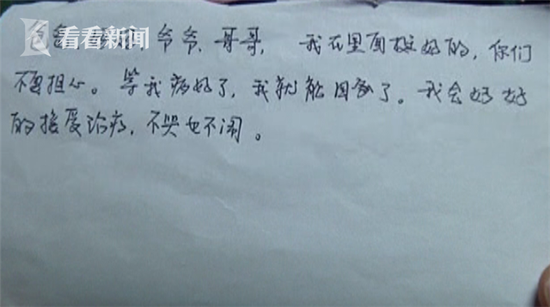 看看新闻
爸爸、爷爷、哥哥, 我在里面挺好的, 你们
不要担心。等我病好了, 我就能回家了。我会好好
的接受治疗, 不哭也不闹。